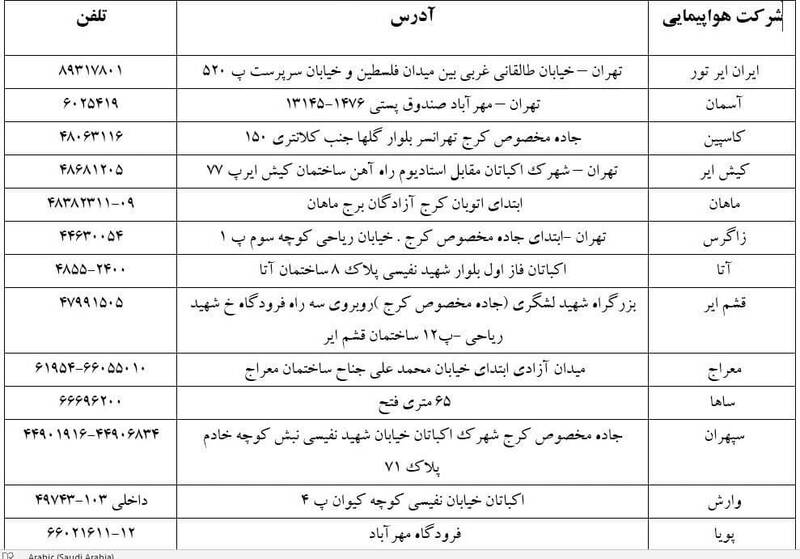 شرکت هواپیمایی آدرس تلفن
ایران ایر تور تهران – خیابان طالقانی غربی بین میدان فلسطین و خیابان سرپرست پ ۵۲۰ ۸۹۳۱۷۸۰۱
آسمان تهران – مهرآباد صندوق پستی ۱۴۷۶-۱۳۱۴۵ ۶۰۲۵۴۱۹
کاسپین جاده مخصوص کرج تهرانسر بلوار گلها جنب کلانتری ۱۵۰ ۴۸۰۶۳۱۱۶
کیش ایر تهران – شهرک اکباتان مقابل استادیوم راه آهن ساختمان کیش ایرپ ۷۷ ۴۸۶۸۱۲۰۵
ماهان ابتدای اتوبان کرج آزادگان برج ماهان ۴۸۳۸۲۳۱۱-۰۹
زاگرس تهران -ابتدای جاده مخصوص کرج . خیابان ریاحی کوچه سوم پ ۱ ۴۴۶۳۰۰۵۴
آتا اکباتان فاز اول بلوار شهید نفیسی پلاک ۸ ساختمان آتا ۴۸۵۵-۲۴۰۰
قشم ایر بزرگراه شهید لشگری (جاده مخصوص کرج )روبروی سه راه فرودگاه خ شهید ۴۷۹۹۱۵۰۵
ریاحی -پ۱۲ ساختمان قشم ایر
معراج میدان آزادی ابتدای خیابان محمد علی جناح ساختمان معراج ۶۱۹۵۴-۶۶۰۵۵۰۱۰
ساها ۶۵ متری فتح ۶۶۶۹۶۲۰۰
سپهران جاده مخصوص کرج شهرک اکباتان خیابان شهید نفیسی نبش کوچه خادم ۴۴۹۰۱۹۱۶-۴۴۹۰۶۸۳۴
پلاک ۷۱
وارش اکباتان خیابان نفیسی کوچه کیوان پ ۴ داخلی ۱۰۳-۴۹۷۴۳
پویا فرودگاه مهرآباد ۶۶۰۲۱۶۱۱-۱۲
Arabic (Saudi Arabia)